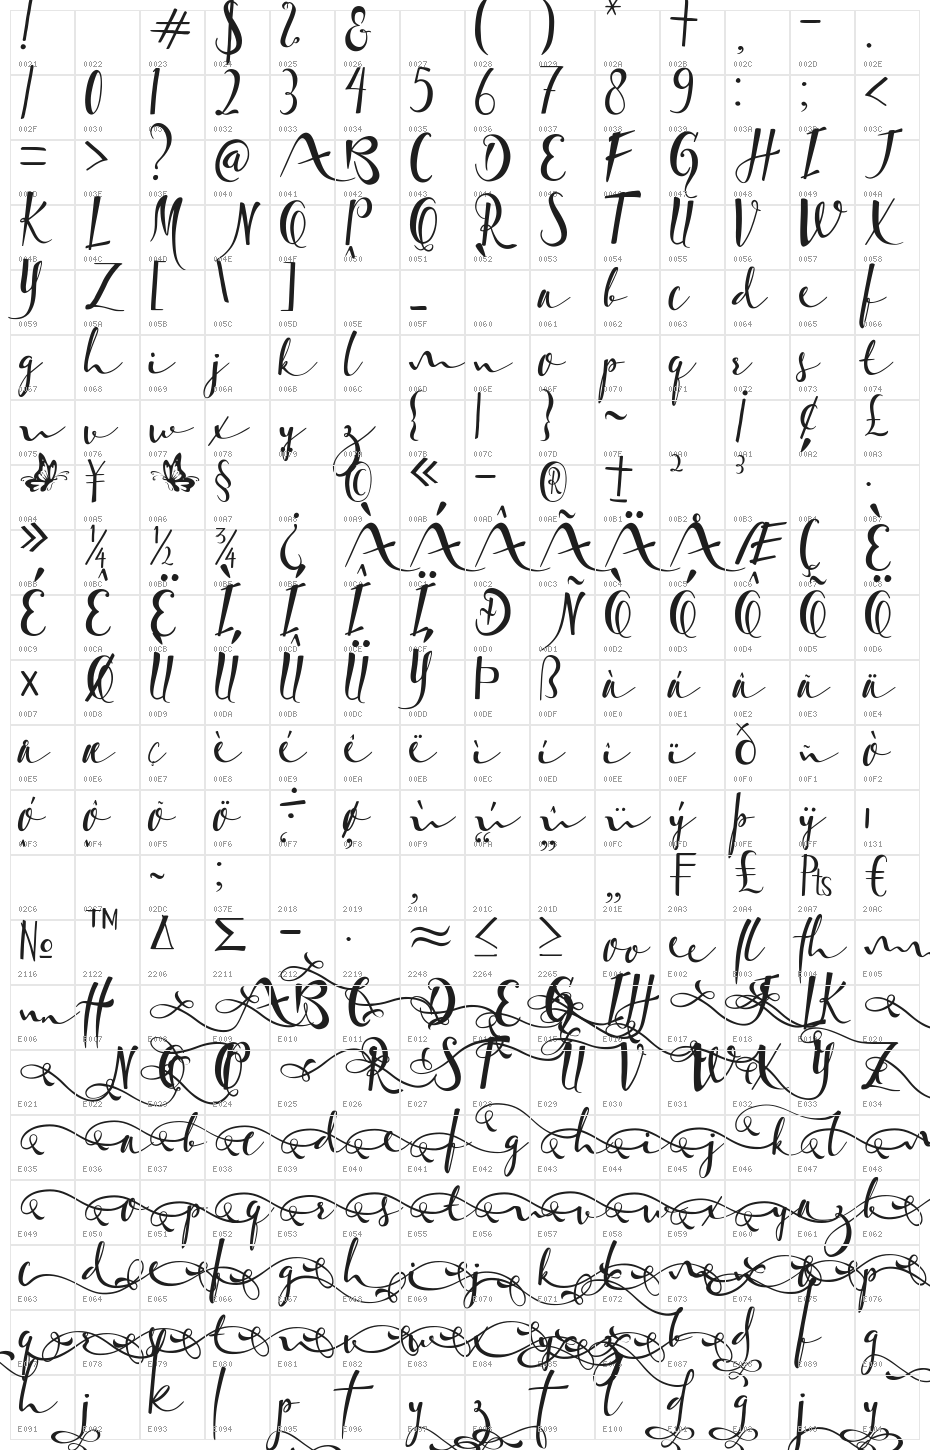 ! # $ & ( ) * + , - .
0021 0022 0023 0024 0025 0026 0027 0028 0029 002A 002B 002C 002D 002E
/ 0 1 2 3 4 5 6 7 8 9 : ; <
002F 0030 0031 0032 0033 0034 0035 0036 0037 0038 0039 003A 003B 003C
= > ? @ A B C D E F G H I J
003D 003E 003F 0040 0041 0042 0043 0044 0045 0046 0047 0048 0049 004A
K L M N O P Q R S T U V W X
004B 004C 004D 004E 004F 0050 0051 0052 0053 0054 0055 0056 0057 0058
Y Z [ \ ] _ a b c d e f
0059 005A 005B 005C 005D 005E 005F 0060 0061 0062 0063 0064 0065 0066
g h i j k l m n o p q r s t
0067 0068 0069 006A 006B 006C 006D 006E 006F 0070 0071 0072 0073 0074
u v w x y z { | } ~ ¡ ¢ £
0075 0076 0077 0078 0079 007A 007B 007C 007D 007E 00A0 00A1 00A2 00A3
¥ § © « - ® ± ² ³ ·
00A4 00A5 00A6 00A7 00A8 00A9 00AB 00AD 00AE 00B1 00B2 00B3 00B4 00B7
» ¼ ½ ¾ ¿ À Á Â Ã Ä Å Æ Ç È
00BB 00BC 00BD 00BE 00BF 00C0 00C1 00C2 00C3 00C4 00C5 00C6 00C7 00C8
É Ê Ë Ì Í Î Ï Ð Ñ Ò Ó Ô Õ Ö
00C9 00CA 00CB 00CC 00CD 00CE 00CF 00D0 00D1 00D2 00D3 00D4 00D5 00D6
× Ø Ù Ú Û Ü Ý Þ ß à á â ã ä
00D7 00D8 00D9 00DA 00DB 00DC 00DD 00DE 00DF 00E0 00E1 00E2 00E3 00E4
å æ ç è é ê ë ì í î ï ð ñ ò
00E5 00E6 00E7 00E8 00E9 00EA 00EB 00EC 00ED 00EE 00EF 00F0 00F1 00F2
ó ô õ ö ÷ ø ù ú û ü ý þ ÿ ı
00F3 00F4 00F5 00F6 00F7 00F8 00F9 00FA 00FB 00FC 00FD 00FE 00FF 0131
~ ; ‘ ’ ‚ “ ” „ ₣ ₤ ₧ €
02C6 02C7 02DC 037E 2018 2019 201A 201C 201D 201E 20A3 20A4 20A7 20AC
№ ™ ∆ Σ − ∙ ≈ ≤ ≥ oo ee ll th m
2116 2122 2206 2211 2212 2219 2248 2264 2265 E001 E002 E003 E004 E005
nn tt A B C D E G H I J K
E006 E007 E008 E009 E010 E011 E012 E017 E018 E019 E020
N O P R S T U V W X Y Z
E021 E022 E023 E024 E025 E026 E027 E028 E029 E030 E031 E032 E033 E034
a b c d e f g h i j k t
E035 E036 E037 E038 E039 E040 E041 E042 E043 E044 E045 E046 E047 E048
o p q r s t n v w x y z b
E049 E050 E051 E052 E053 E054 E055 E056 E057 E058 E059 E060 E061 E062
c d e f g h i j k m p
E063 E064 E065 E066 E067 E068 E069 E070 E071 E072 E073 E074 E075 E076
q r s t n v w x b d f g
E077 E078 E079 E080 E081 E082 E083 E084 E085 E086 E087 E088 E089 E090
h j k l p t y z t l d g j y
E091 E092 E093 E094 E095 E096 E097 E098 E099 E100 E101 E102 E103 E104